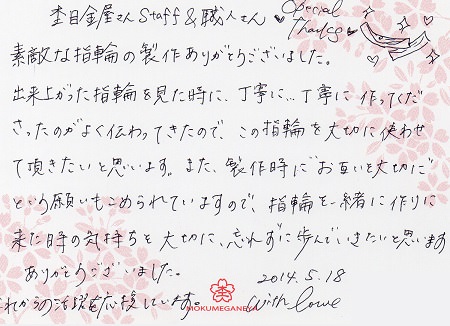 杢目金屋さんStaff&職人さん ♥Special Thanks♥
素敵な指輪の製作ありがとうございました。
出来上がった指輪を見た時に、丁寧に…丁寧に作ってくだ
さったのがよく伝わってきたので、この指輪を大切に使わせ
て頂きたいと思います。また、製作時に"お互いを大切に"
という願いもこめられていますので、指輪を一緒に作りに
来た時の気持ちを大切に、忘れずに歩んでいきたいと思います
ありがとうございました。
2014.5.18
これからの活躍を応援しています。
with love
MOKUMEGANEYA